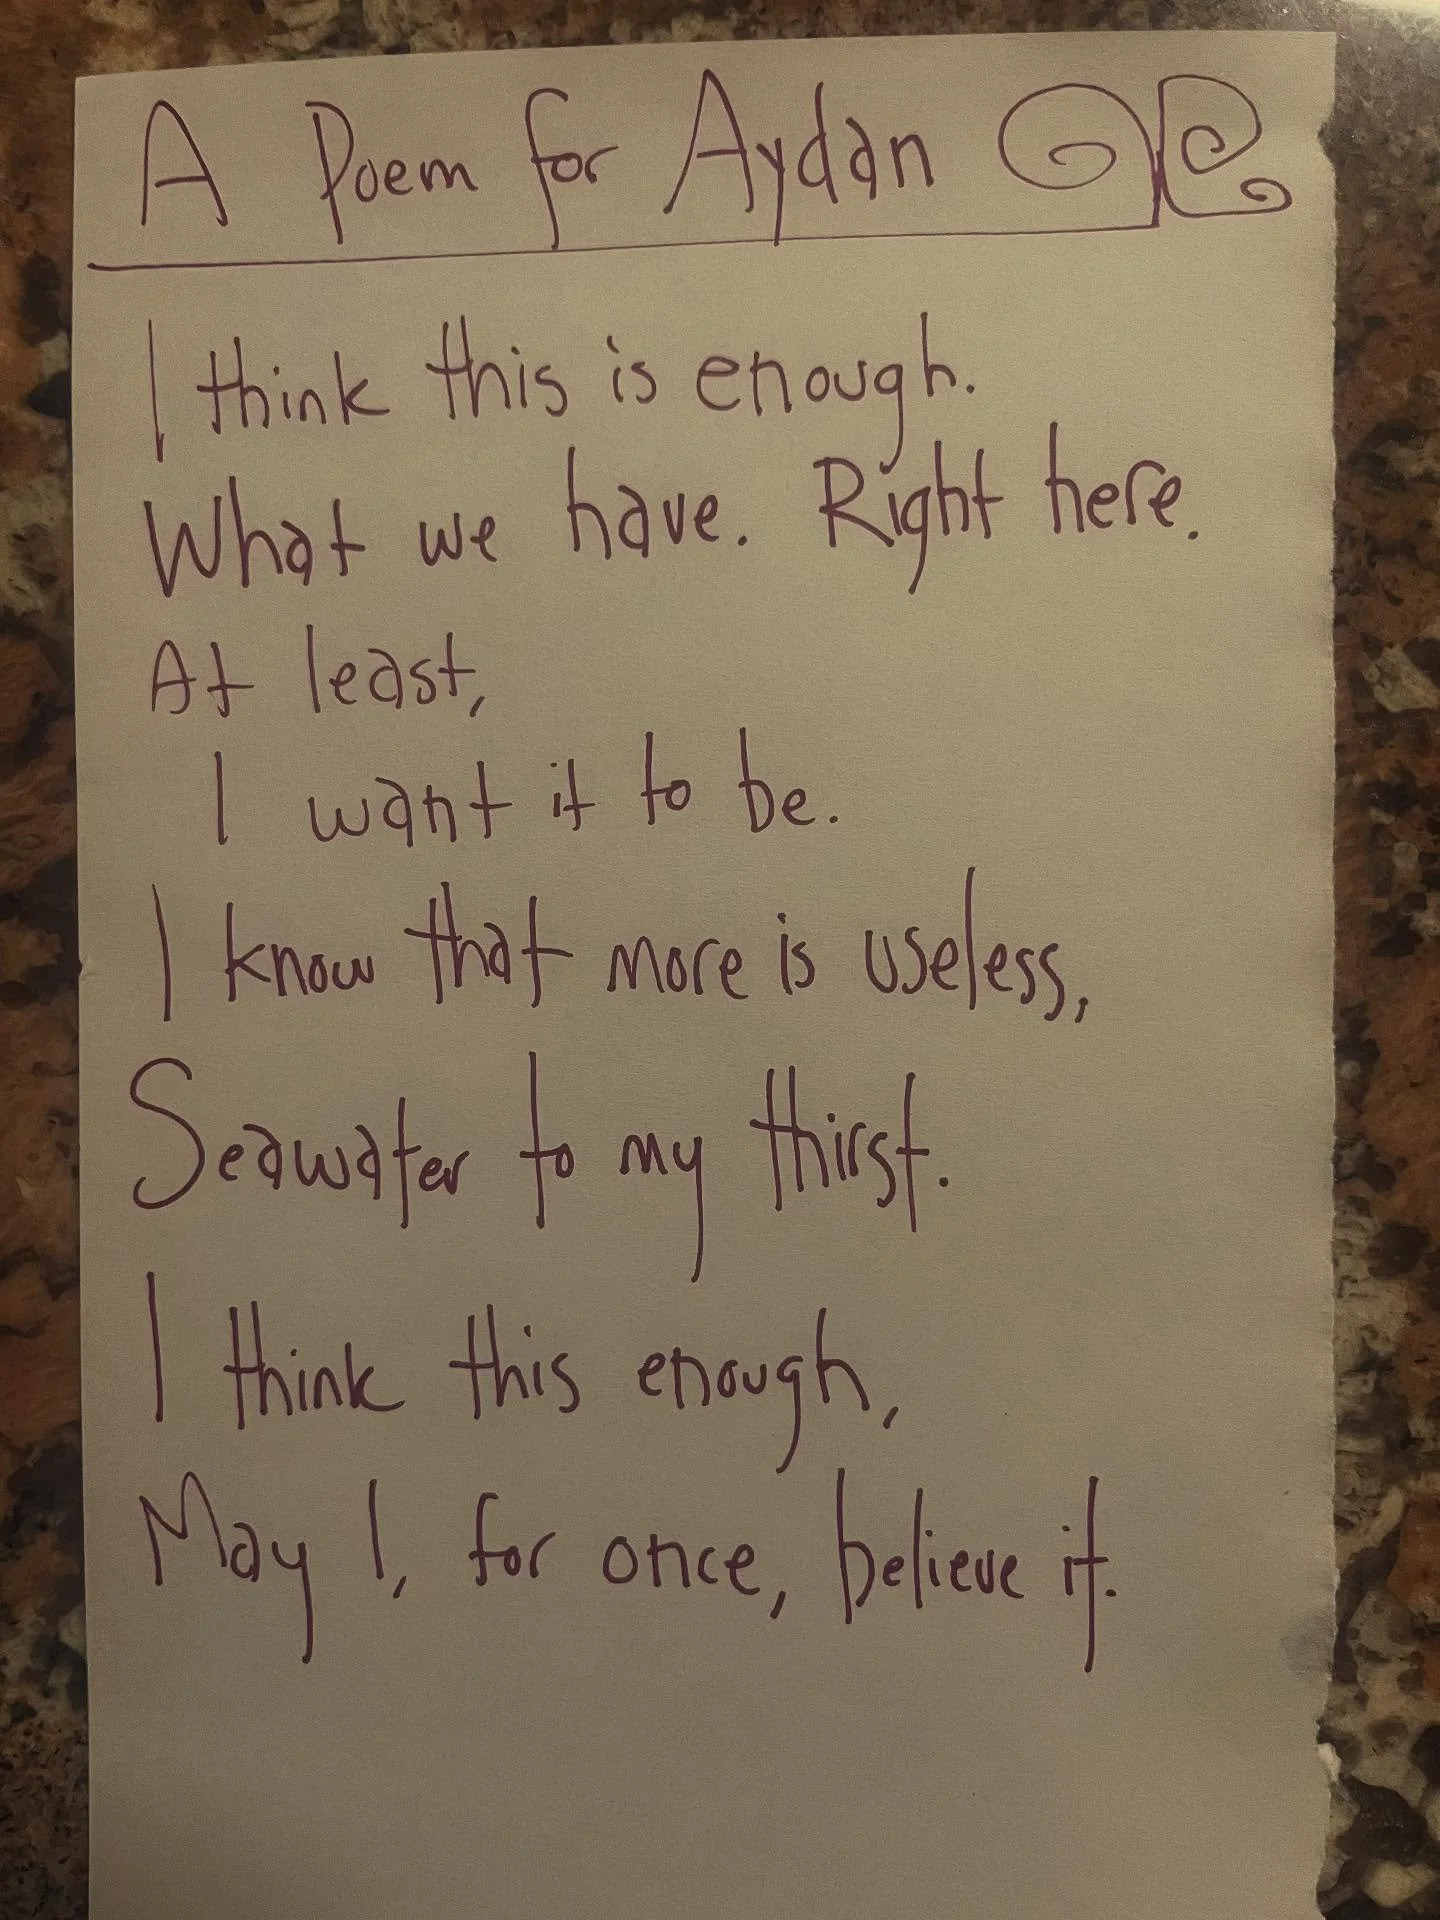 A Poem for Aydan
I think this is enough.
What we have. Right here.
At least,
I want it to be.
I know that more is useless,
Seawater to my thirst.
I think this enough,
May I, for once, believe it.